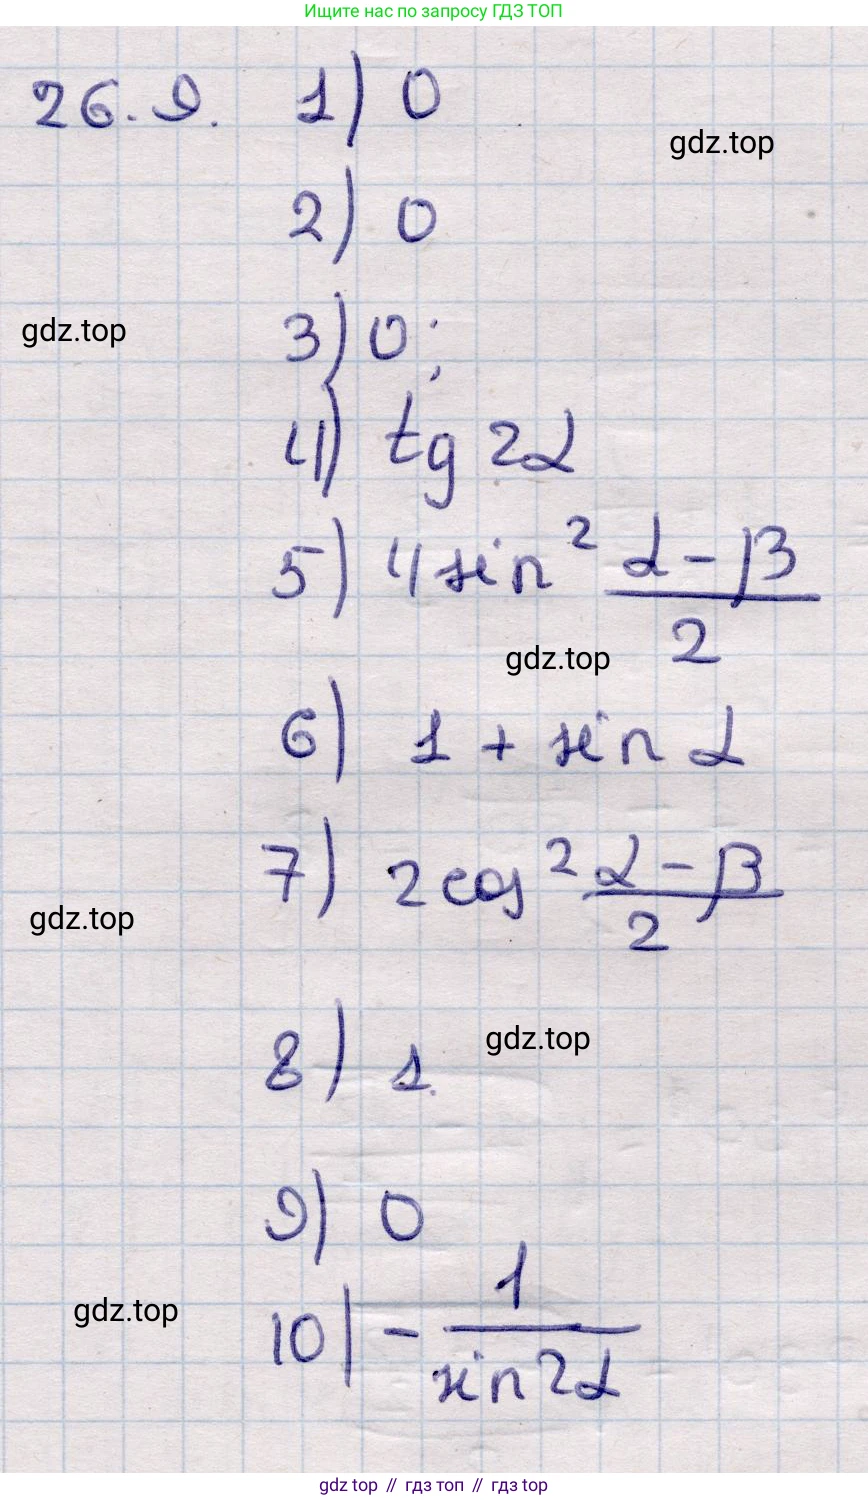 Ищите нас по запросу ГДЗ ТОП
26.9. 1) 0
gdz.top
2) 0
gdz.top
3) 0;
4) tg 2α
5) 4 sin² (α-β)/2
gdz.top
6) 1 + sin α
7) 2 cos² (α-β)/2
gdz.top
8) 1.
gdz.top
9) 0
gdz.top
10) - 1/(sin 2α)
gdz top // гдз топ // gdz top